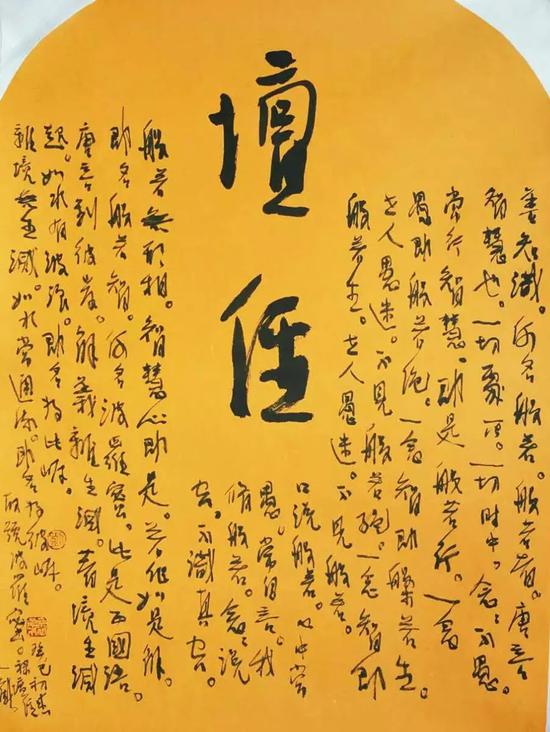 壇經
善知識。何名般若。般若者。唐言
智慧也。一切處所。一切時中。念念不愚
常行智慧。即是般若行。一念
愚即般若絕。一念智即般若生。
世人愚迷。不見般若絕。一念智即
般若生。世人愚迷。不見般若。
口說般若。心中常
愚。常自言。我
修般若。念念說
空。不識真空。
般若無形相。智慧心即是。若作如是解。
即名般若智。何名波羅蜜。此是西國語。
唐言到彼岸。解義離生滅。著境生滅
起。如水有波浪。即名為此岸。
離境無生滅。如水常通流。即名為彼岸。
故號波羅蜜。